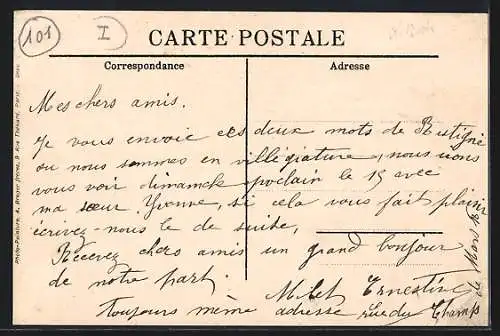 101
I
CARTE POSTALE
Correspondance
Adresse
Mes chers amis.
Je vous envoie ces deux mots de Rustigné
ou nous sommes en villégiature, nous irons
vous voir dimanche proclain le 15 avec
ma sœur Yvonne, si cela vous fait plaisir
écrivez-nous le de suite,
Recevez chers amis un grand bonjour
de notre part.
Ernestine
toujours même adresse rue du Champ
de Mars